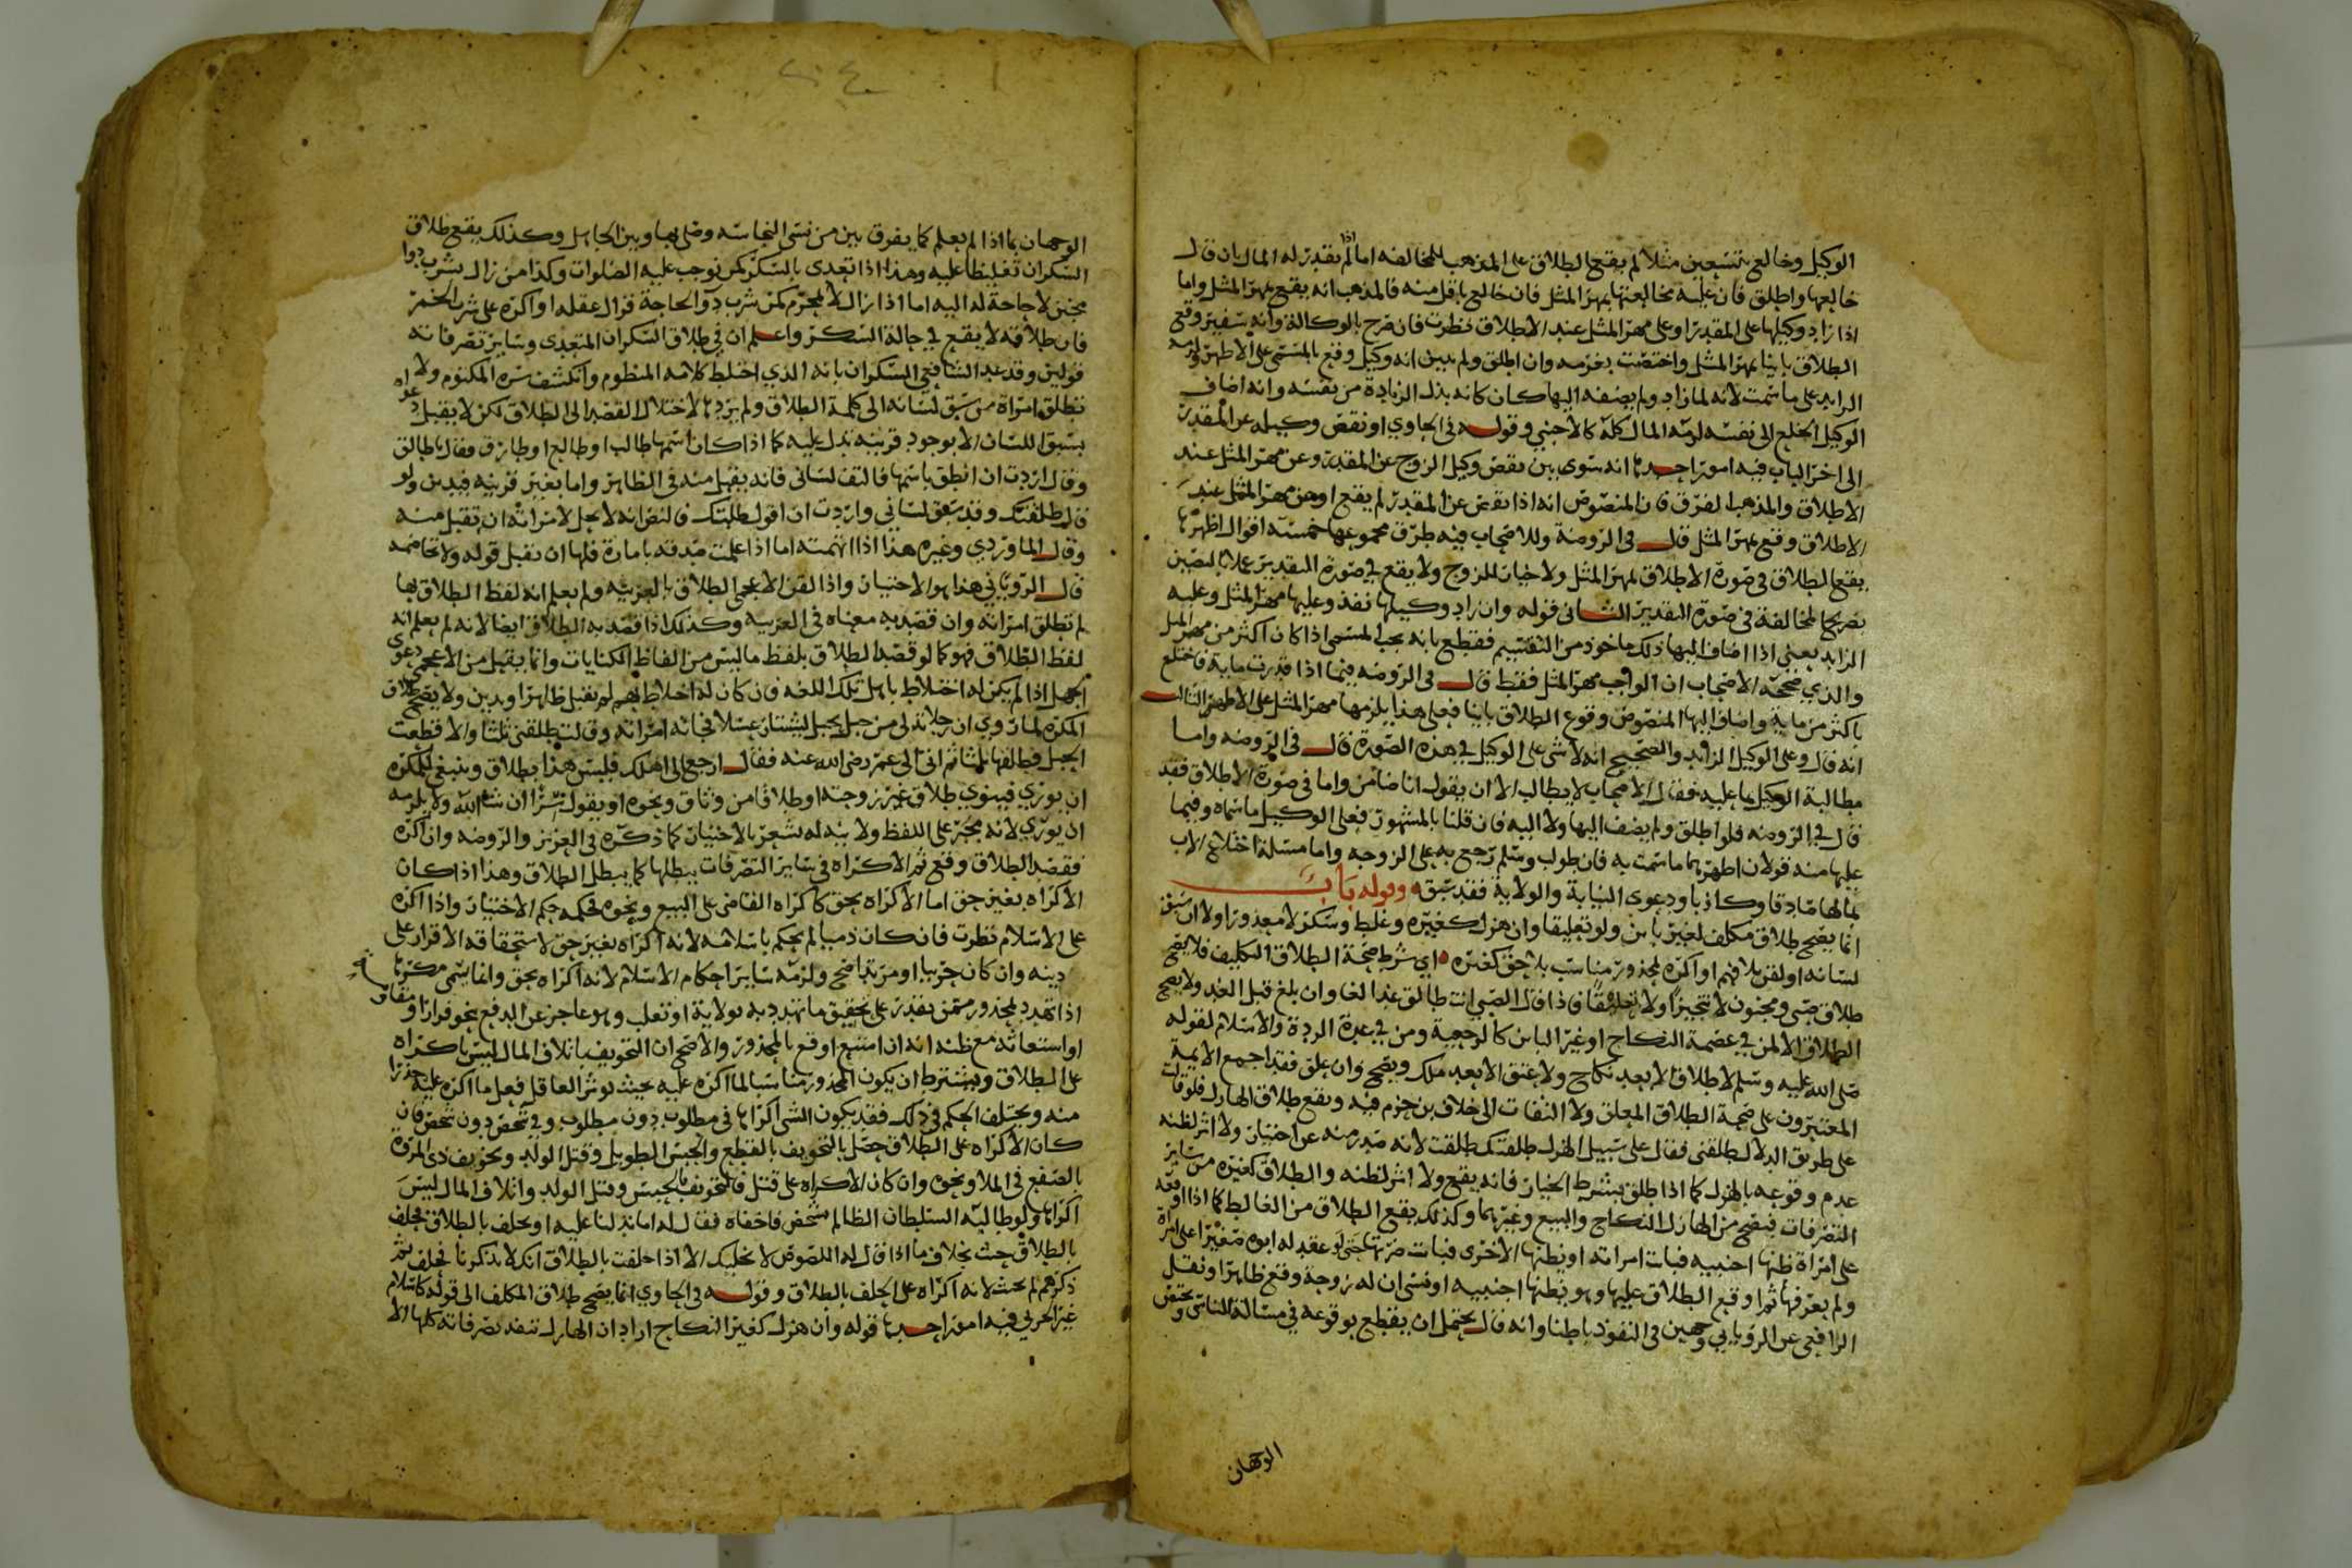 الوكيل وخالع بتسعين مثلا لم يقع الطلاق على المذهب للمخالفه اما اذا لم يقدر له المال بان قال
خالعها واطلق فان عليه مخالعتها بمهر المثل فان خالع باقل منه فالمذهب انه يقع بمهر المثل واما
اذا زاد وكيلها على المقدر او على مهر المثل عند الاطلاق نظرت فان صرح بالوكالة وانه سفير وقع
الطلاق باينا بمهر المثل واختصت بغرمه وان اطلق ولم يبين انه وكيل وقع بالمسمى على الاظهر ولزمه
الزايد على ما سمت لانه لما زاد ولم يضفه اليها كان كانه بذل الزيادة من نفسه وانه اضاف
الوكيل الخلع الى نفسه لزمه المال كله كالاجنبي وقوله في الحاوي او نقص وكيله عن المقدر
الى اخر الباب فيه امور احدها انه سوى بين نقص وكيل الزوج عن المقدر وعن مهر المثل عند
الاطلاق والمذهب الفرق فان المنصوص انه اذا نقص عن المقدر لم يقع او عن مهر المثل عند
الاطلاق وقع بمهر المثل قال في الروضة وللاصحاب فيه طرق مجموعها خمسة اقوال اظهرها
يقع الطلاق في صورة الاطلاق بمهر المثل ولا خيار للزوج ولا يقع في صورة التقدير عملا بالنصين
بصريح المخالفة في صورة التقدير الثاني قوله وان زاد وكيلها نفذ وعليها مهر المثل وعليه
الزايد يعني اذا اضاف اليها ذلك ماخوذ من التقسيم فقطع بانه يجب المسمى اذا كان اكثر من مهر المثل
والذي صححه الاصحاب ان الواجب مهر المثل فقط قال في الروضه فيما اذا قدرت ماية فاختلع
باكثر من ماية واضاف اليها المنصوص وقوع الطلاق باينا فعلى هذا يلزمها مهر المثل على الاظهر الثالث
انه قال وعلى الوكيل الزايد والصحيح انه لا شى على الوكيل في هذه الصورة قال في الروضه واما
مطالبة الوكيل بما عليه فقال الاصحاب لا يطالب الا ان يقول انا ضامن واما في صورة الاطلاق فقد
قال في الروضه فلو اطلق ولم يضف اليها ولا اليه فان قلنا بالمشهور فعلى الوكيل ما سماه وفيما
عليها منه قولان اظهرهما ما سمت به فان طولب وسلم رجع به على الزوجه واما مسئلة اختلاع الاب
بمالها صادقا وكاذبا ودعوى النيابة والولاية فقد سبق وقوله باب
انما يصح طلاق مكلف لغير باين ولو تعليقا وان هزل كغيره وغلط وسكر لا معذورا ولا ان سبق
لسانه او لقن بلا فهم او اكره لمحذور مناسب بلا حق كغيره اي شرط صحة الطلاق التكليف فلا يصح
طلاق صبي ومجنون لا تنجيزا ولا تعليقا فاذا قال الصبي انت طالق غدا لغا وان بلغ قبل الغد ولا يصح
الطلاق الا لمن في عصمة النكاح او غير الباين كالرجعية ومن في عدة الردة والاسلام لقوله
صلى الله عليه وسلم لا طلاق الا بعد نكاح ولا عتق الا بعد ملك ويصح وان علق فقد اجمع الايمة
المعتبرون على صحة الطلاق المعلق ولا التفات الى خلاف بن حزم فيه ويقع طلاق الهازل فلو قالت
على طريق الدلال طلقني فقال على سبيل الهزل طلقتك طلقت لانه صدر منه عن اختيار ولا اثر لظنه
عدم وقوعه بالهزل كما اذا طلق بشرط الخيار فانه يقع ولا اثر لظنه والطلاق كغيره من ساير
التصرفات فيصح من الهازل النكاح والبيع وغيرهما وكذلك يقع الطلاق من الغالط كما اذا اوقعه
على امراة ظنها اجنبيه فبانت امراته او يظنها الاخرى فبانت ضرتها حتى لو عقد له ابوه صغيرا على امراة
ولم يعرفها ثم اوقع الطلاق عليها وهو يظنها اجنبيه او نسي ان له زوجة وقع ظاهرا ونقل
الرافعي عن الروياني وجهين في النفوذ باطنا وانه قال يحتمل ان يقطع بوقوعه في مسالة الناسي ويختص
الوجهان
الوجهان بما اذا لم يعلم كما يفرق بين من نسي النجاسه وصلى بها وبين الجاهل وكذلك يقع طلاق
السكران تغليظا عليه وهذا اذا تعدى بالسكر كمن توجب عليه الصلوات وكذا من زال بشرب دوا
مجنن لا حاجة له اليه اما اذا زال لا بمحرم كمن شرب دوا لحاجة فزال عقله او اكره على شرب الخمر
فان طلاقه لا يقع في حالة السكر واعلم ان في طلاق السكران المتعدى وساير تصرفاته
قولين وقد حد الشافعي السكران بانه الذي اختلط كلامه المنظوم وانكشف سره المكتوم ولا
تطلق امراة من سبق لسانه الى كلمة الطلاق ولم يرد ها لاختلال القصد الى الطلاق لكن لا يقبل دعواه
بسبق اللسان الا بوجود قرينه تدل عليه كما اذا كان اسمها طالب او طالع او طارق فقال يا طالق
وقال اردت ان انطق باسمها فالتف لساني فانه يقبل منه في الظاهر واما بغير قرينه فيدين ولو
قال طلقتك وقد سبق لساني واردت ان اقول طلبتك فالنص انه لا يحل لامراته ان تقبل منه
وقال الماوردي وغيره هذا اذا اتهمته اما اذا علمت صدقه بامارة فلها ان تقبل قوله ولا تخاصمه
قال الروياني هذا هو الاختيار واذا لقن الاعجمي الطلاق بالعربيه ولم يعلم انه لفظ الطلاق بها
لم تطلق امراته وان قصد به معناه في العربيه وكذلك اذا قصد به الطلاق ايضا لانه لم يعلم انه
لفظ الطلاق فهو كما لو قصد الطلاق بلفظ ما ليس من الفاظ الكنايات وانما يقبل من الاعجمي دعوى
الجهل اذا لم يكن له اختلاط باهل تلك اللغه فان كان له اختلاط بهم لم يقبل ظاهرا ويدين ولا يصح طلاق
المكره لما روي ان رجلا تدلى من جبل بحبل ليشتار عسلا فجاته امراته وقالت طلقني ثلثا والا قطعت
الحبل فطلقها ثلثا ثم اتى الى عمر رضي الله عنه فقال ارجع الى اهلك فليس هذا بطلاق وينبغي للمكره
ان يوري فينوي طلاق غير زوجته او طلاقا من وثاق ونحوه او يقول سرا ان شا الله ولا يلزمه
ان يوري لانه مجبر على اللفظ ولا نيه له تشعر بالاختيار كما ذكره في العزيز والروضه وان اكره
فقصد الطلاق وقع ثم الاكراه في ساير التصرفات يبطلها كما يبطل الطلاق وهذا اذا كان
الاكراه بغير حق اما الاكراه بحق كاكراه القاضي على البيع ونحوه فحكمه حكم الاختيار واذا اكره
على الاسلام نظرت فان كان ذميا لم يحكم باسلامه لانه اكراه بغير حق لاستحقاقه الاقرار على
دينه وان كان حربيا او مرتدا صح ولزمه ساير احكام الاسلام لانه اكراه بحق وانما يسمى مكرها
اذا تهدد بمحذور ممن يقدر على تحقيق ما تهدد به بولاية او تغلب وهو عاجز عن الدفع بنحو فرار او مقاومه
او استغاثه مع ظنه انه ان امتنع اوقع بالمحذور والاصح ان التخويف باتلاف المال ليس باكراه
على الطلاق ويشترط ان يكون المحذور مناسبا لما اكره عليه بحيث يوثر العاقل فعل ما اكره عليه حذرا
منه ويختلف الحكم في ذلك فقد يكون الشي اكراها في مطلوب دون مطلوب وفي شخص دون شخص فان
كان الاكراه على الطلاق حصل بالتخويف بالقطع والحبس الطويل وقتل الولد وتخويف ذي المروة
بالصفع في الملا ونحوه وان كان الاكراه على قتل فالتخويف بالحبس وقتل الولد واتلاف المال ليس
اكراها ولو طالبه السلطان الظالم بشخص فاخفاه فقال له اما تدلنا عليه او تحلف بالطلاق فحلف
بالطلاق حنث بخلاف ما اذا قال له اللصوص لا نخليك الا اذا حلفت بالطلاق انك لا تذكرنا فحلف ثم
ذكرهم لم يحنث لانه اكراه على الحلف بالطلاق وقوله في الحاوي انما يصح طلاق المكلف الى قوله كاسلام
غير الحربي فيه امور احدها قوله وان هزل كغير النكاح اراد ان الهازل تنفذ تصرفاته كلها الا